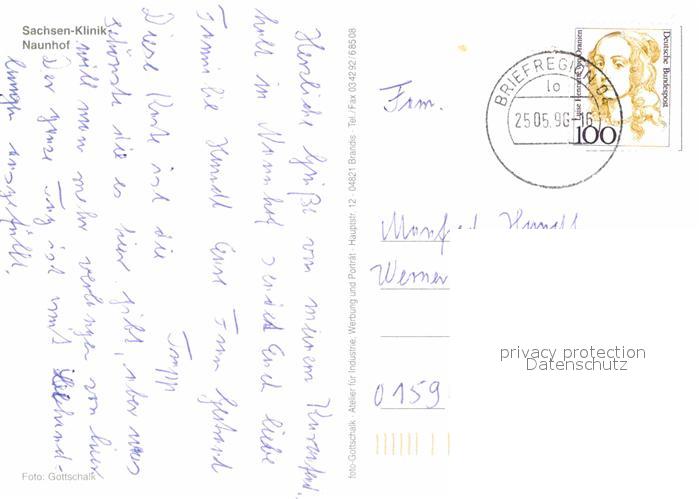 Sachsen-Klinik
Naunhof
Herzliche Grüße von meinem Kuraufent.
halt in Naunhof sendet Euch liebe
Familie Hundt Eure Frau Gertrud
Trapp
Diese Karte ist die
schönste die es hier gibt, aber was
will man mehr verlangen von hier
Der ganze Tag ist mit Behand-
lungen ausgefüllt.
Foto: Gottschalk
foto-Gottschalk · Atelier für Industrie, Werbung und Porträt · Hauptstr. 12 · 04821 Brandis · Tel./ Fax 034292/68508
Fam.
Manfred Hundt
Werner
0159
BRIEFREGION 04
lo
25.05.96-16
Deutsche Bundespost
Luise Henriette von Oranien
100
privacy protection
Datenschutz